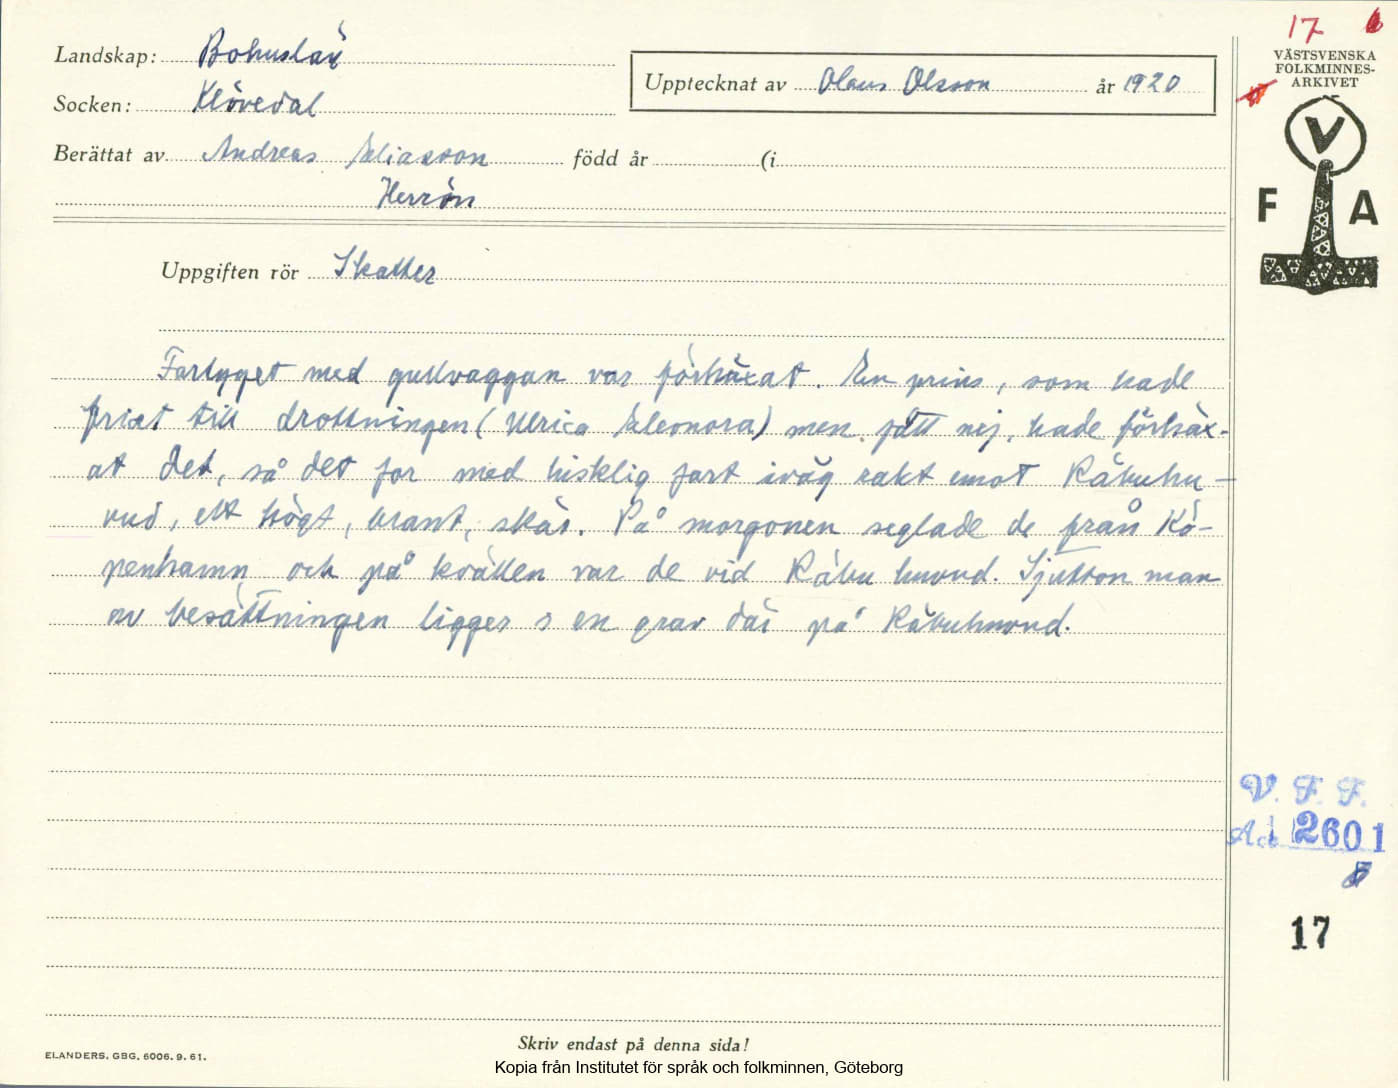 Landskap: Bohuslän
Socken: Klövedal
Upptecknat av Olaus Olsson år 1920
Berättat av Andreas Eliasson född år (i
Herrön
Uppgiften rör Skatter
Fartyget med gullvaggan var förhäxat. En prins, som hade
friat till drottningen (Ulrica Eleonora) men fått nej, hade förhäx-
at det, så det for med hisklig fart iväg rakt emot Råbuhu-
vud, ett högt, brant, skär. På morgonen seglade de från Kö-
penhamn och på kvällen var de vid Råbu huvud. Sjutton man
av besättningen ligger i en grav där på Råbuhuvud.
17 6
VÄSTSVENSKA
FOLKMINNES-
ARKIVET
V
F A
V. F. F.
Acc 2601
17
Skriv endast på denna sida!
ELANDERS, GBG, 6006. 9. 61.
Kopia från Institutet för språk och folkminnen, Göteborg